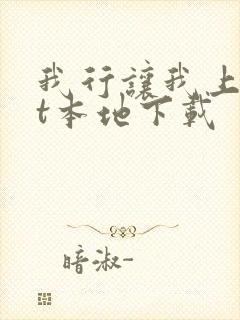 我行讓我上
t本地下載
暗淑-